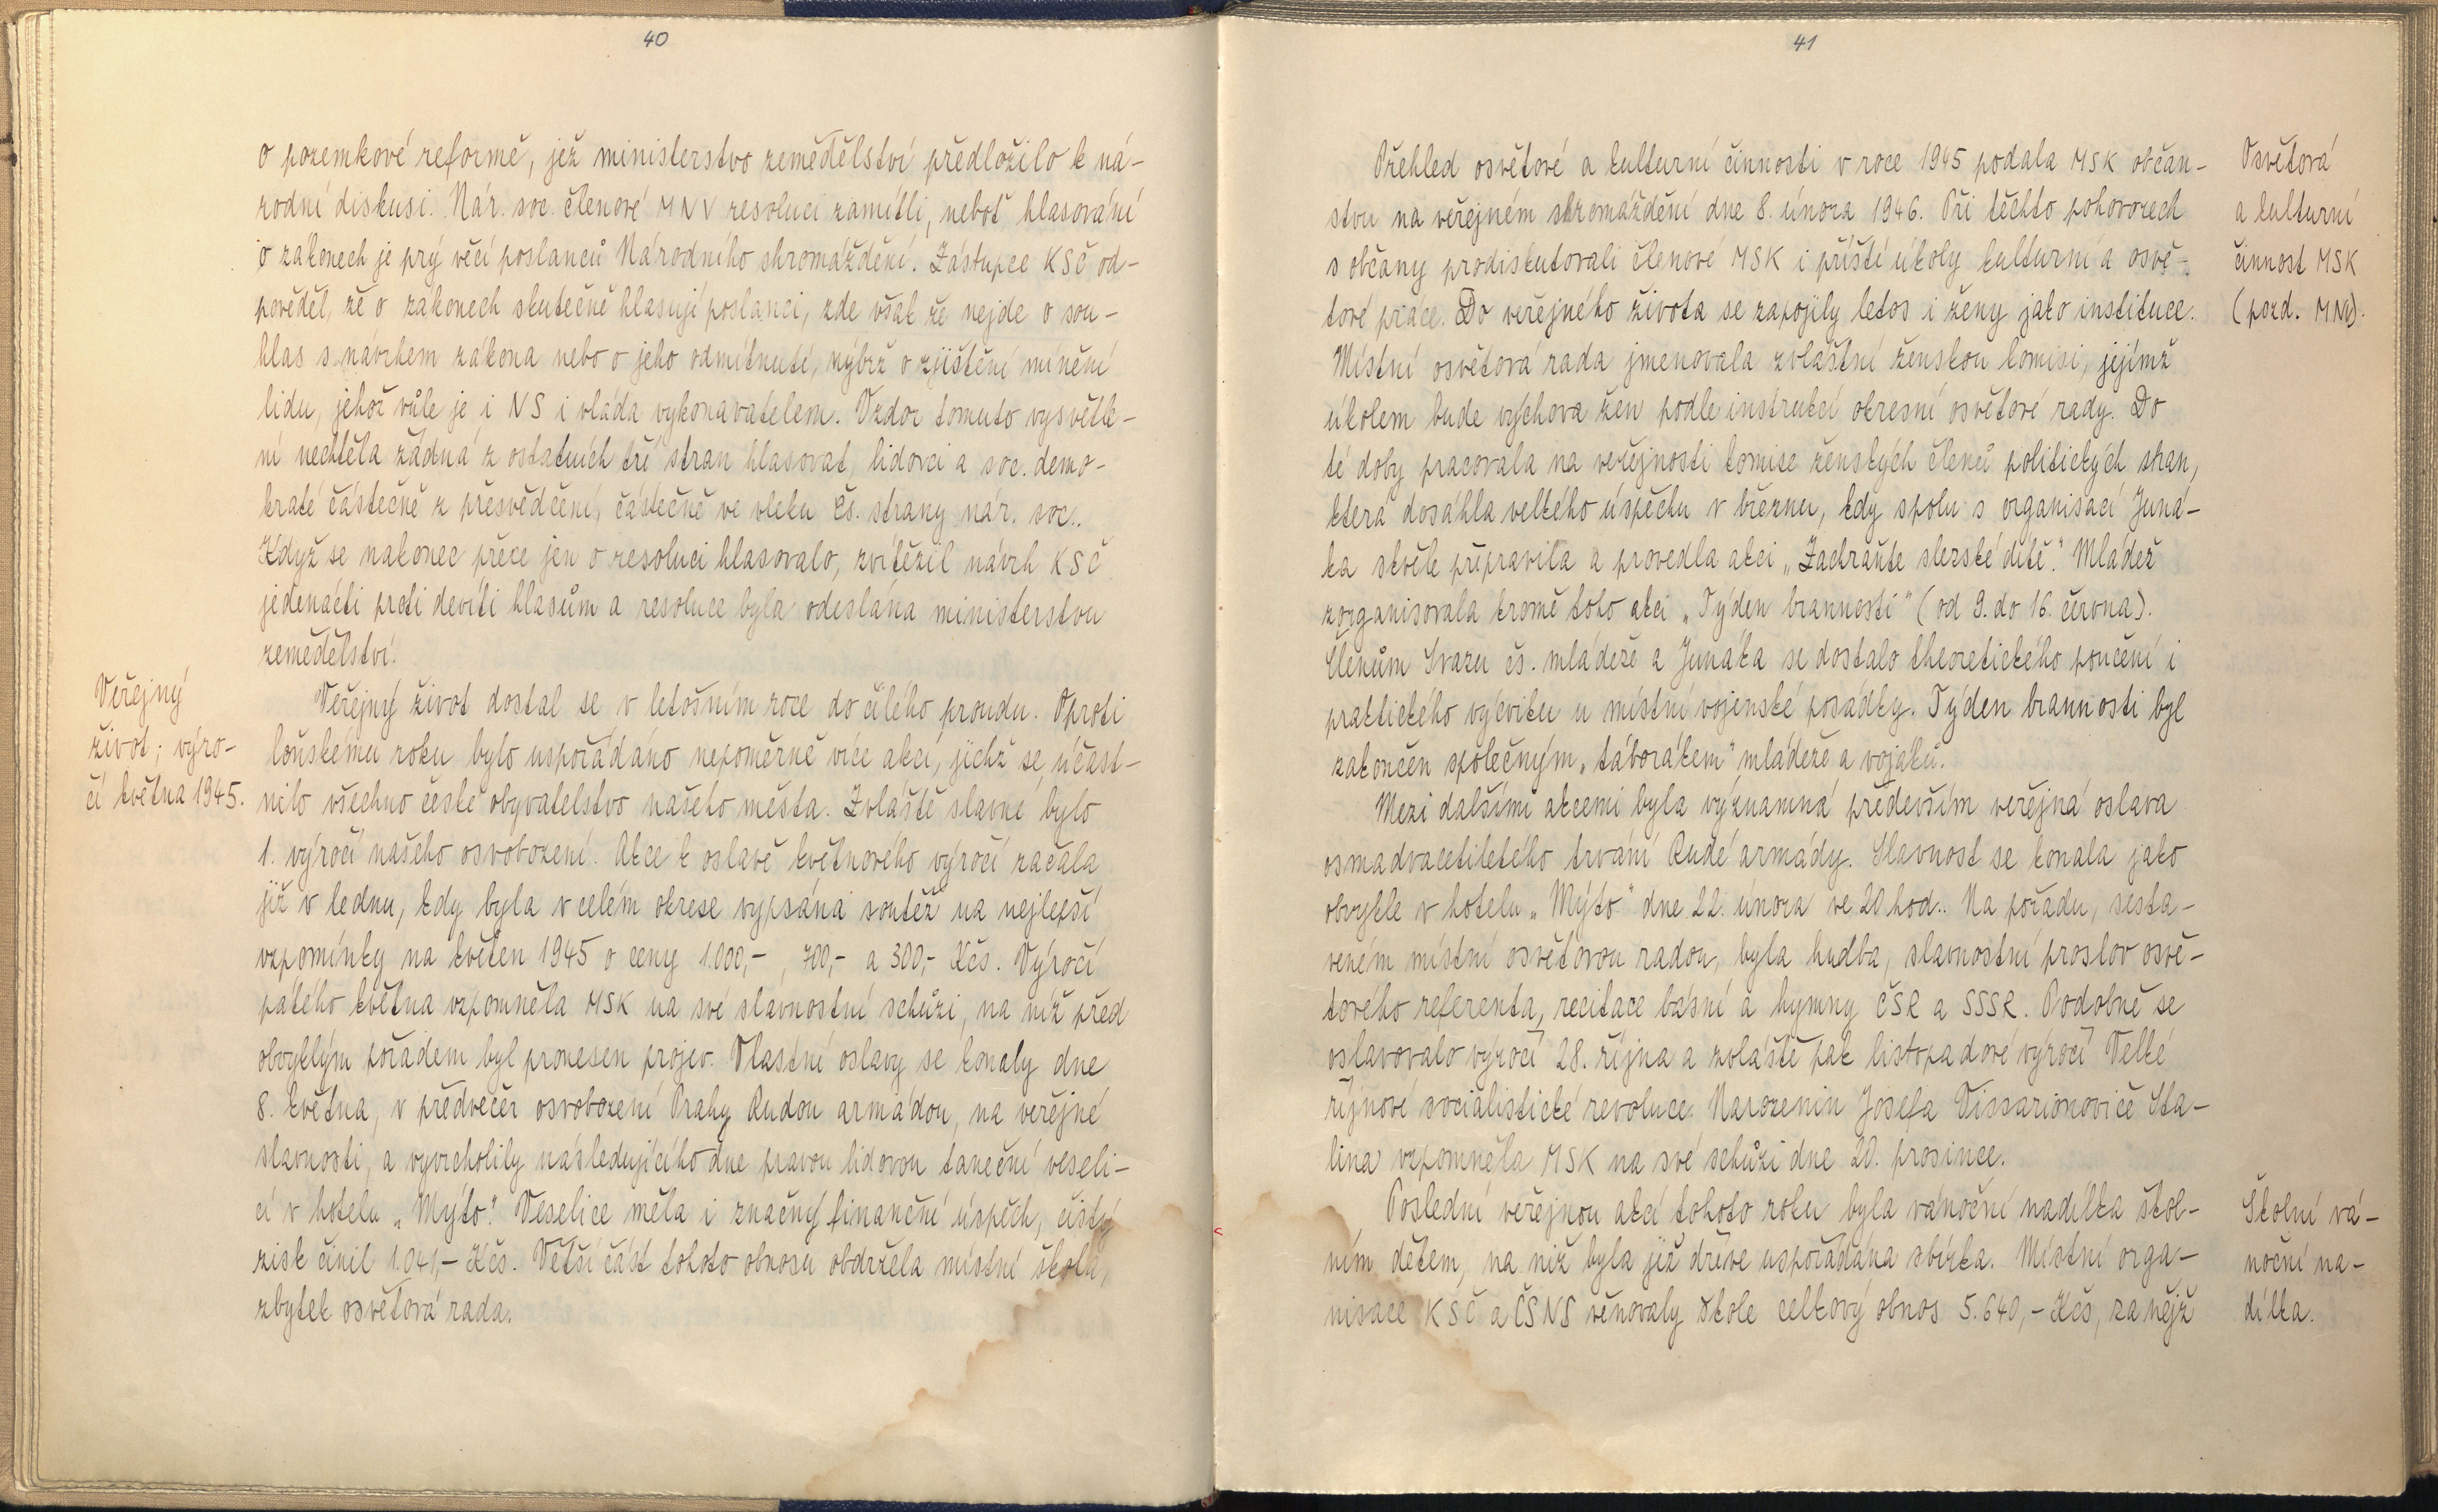 40
o pozemkové reformě, jež ministerstvo zemědělství předložilo k ná-
rodní diskusi. Nár. soc. členové MNV resoluci zamítli, neboť hlasování
o zákonech je prý věcí poslanců Národního shromáždění. Zástupce KSČ od-
pověděl, že o zákonech skutečně hlasují poslanci, zde však že nejde o sou-
hlas s navrhem zákona nebo o jeho odmítnutí, nýbrž o zjištění mínění
lidu, jehož vůle je i NS i vláda vykonavatelem. Vzdor tomuto vysvětle-
ní nechtěla žádná z ostatních tří stran hlasovat, lidovci a soc. demo-
kraté částečně z přesvědčení, částečně ve vleku čs. strany nár. soc..
Když se nakonec přece jen o resoluci hlasovalo, zvítězil návrh KSČ
jedenácti proti devíti hlasům a resoluce byla odeslána ministerstvu
zemědělství.
Veřejný
život; výro-
čí května 1945.
Veřejný život dostal se v letošním roce do čilého proudu. Oproti
loňskému roku bylo uspořádáno nepoměrně více akcí, jichž se účast-
nilo všechno české obyvatelstvo našeho města. Zvláště slavné bylo
1. výročí našeho osvobození. Akce k oslavě květnového výročí začala
již v lednu, kdy byla v celém okrese vypsána soutěž na nejlepší
vzpomínky na květen 1945 o ceny 1.000,-, 700,- a 300,- Kčs. Výročí
pátého května vzpomněla MSK na své slavnostní schůzi, na níž před
obvyklým pořadem byl pronesen projev. Vlastní oslavy se konaly dne
8. května, v předvečer osvobození Prahy Rudou armádou, na veřejné
slavnosti, a vyvrcholily následujícího dne pravou lidovou taneční veseli-
cí v hotelu „Mýto". Veselice měla i značný finanční úspěch, čistý
zisk činil 1.041,- Kčs. Větší část tohoto obnosu obdržela místní škola,
zbytek osvětová rada.
41
Přehled osvětové a kulturní činnosti v roce 1945 podala MSK občan-
stvu na veřejném shromáždění dne 8. února 1946. Při těchto pohovorech
s občany prodiskutovali členové MSK i příští úkoly kulturní a osvě-
tové práce. Do veřejného života se zapojily letos i ženy jako instituce.
Místní osvětová rada jmenovala zvláštní ženskou komisi, jejímž
úkolem bude výchova žen podle instrukcí okresní osvětové rady. Do
té doby pracovala na veřejnosti komise ženských členů politických stran,
která dosáhla velkého úspěchu v březnu, kdy spolu s organisací Juná-
ka skvěle připravila a provedla akci „Zachraňte slezské dítě". Mládež
zorganisovala kromě toho akci „Týden brannosti" (od 9. do 16. června).
Členům Svazu čs. mládeže a Junáka se dostalo theoretického poučení i
praktického výcviku u místní vojenské posádky. Týden brannosti byl
zakončen společným „táborákem" mládeže a vojáků.
Mezi dalšími akcemi byla významná především veřejná oslava
osmadvacetiletého trvání Rudé armády. Slavnost se konala jako
obvykle v hotelu „Mýto" dne 22. února ve 20 hod.. Na pořadu, sesta-
veném místní osvětovou radou, byla hudba, slavnostní proslov osvě-
tového referenta, recitace básní a hymny ČSR a SSSR. Podobně se
oslavovalo výročí 28. října a zvláště pak listopadové výročí Velké
říjnové socialistické revoluce. Narozenin Josefa Vissarionoviče Sta-
lina vzpomněla MSK na své schůzi dne 20. prosince.
Poslední veřejnou akcí tohoto roku byla vánoční nadílka škol-
ním dětem, na niž byla již dříve uspořádána sbírka. Místní orga-
nisace KSČ a ČSNS věnovaly škole celkový obnos 5.640,- Kčs, za nějž
Osvětová
a kulturní
činnost MSK
(pozd. MNV).
Školní vá-
noční na-
dílka.